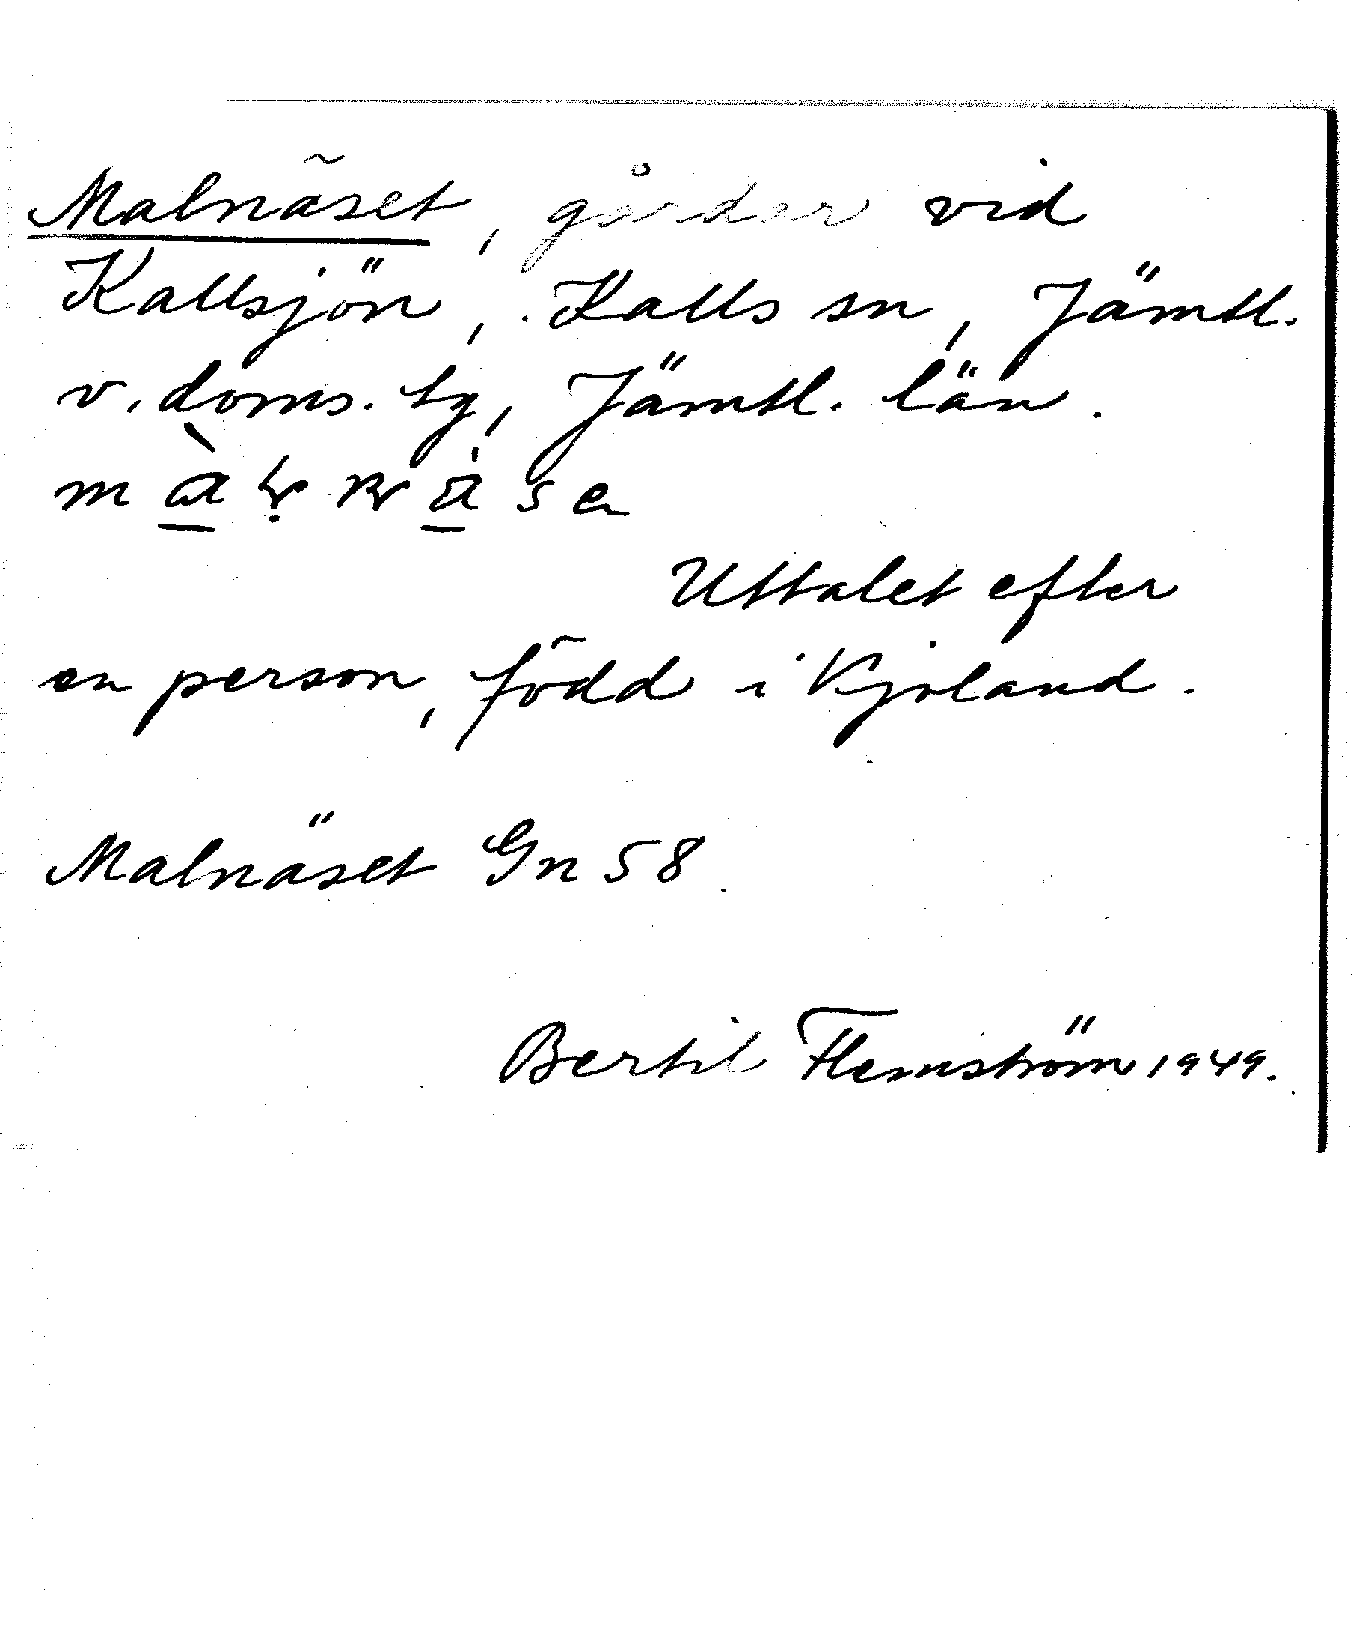 Malnäset, gårdar vid
Kallsjön, Kalls sn, Jämtl.
v. doms. tg, Jämtl. län.
Uttalet efter
en person, född i Kjoland.
Malnäset Gn 58
Bertil Flemström 1949.